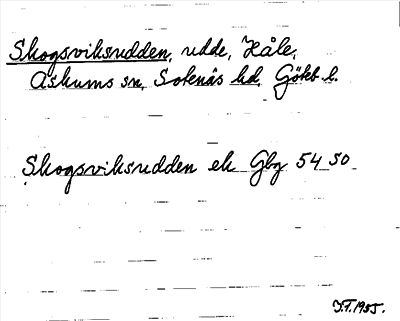 Skogsviksudden, udde, Håle,
Askums sn, Sotenäs hd, Göteb. l.
Skogsviksudden ek Gbg 54 50
J.F. 1955.